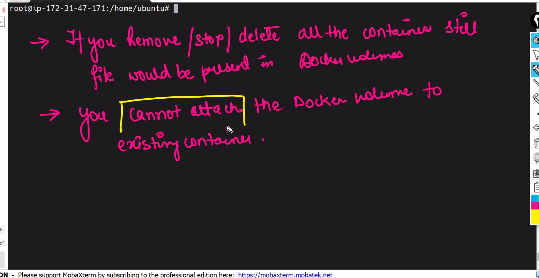 root@ip-172-31-47-171:/home/ubuntu#
→ If you Remove /stop/ delete all the container still
file would be present in Docker volumes
→ you cannot attach the Docker volume to
existing container.
ON - Please support MobaXterm by subscribing to the professional edition here: https://mobaxterm.mobatek.net